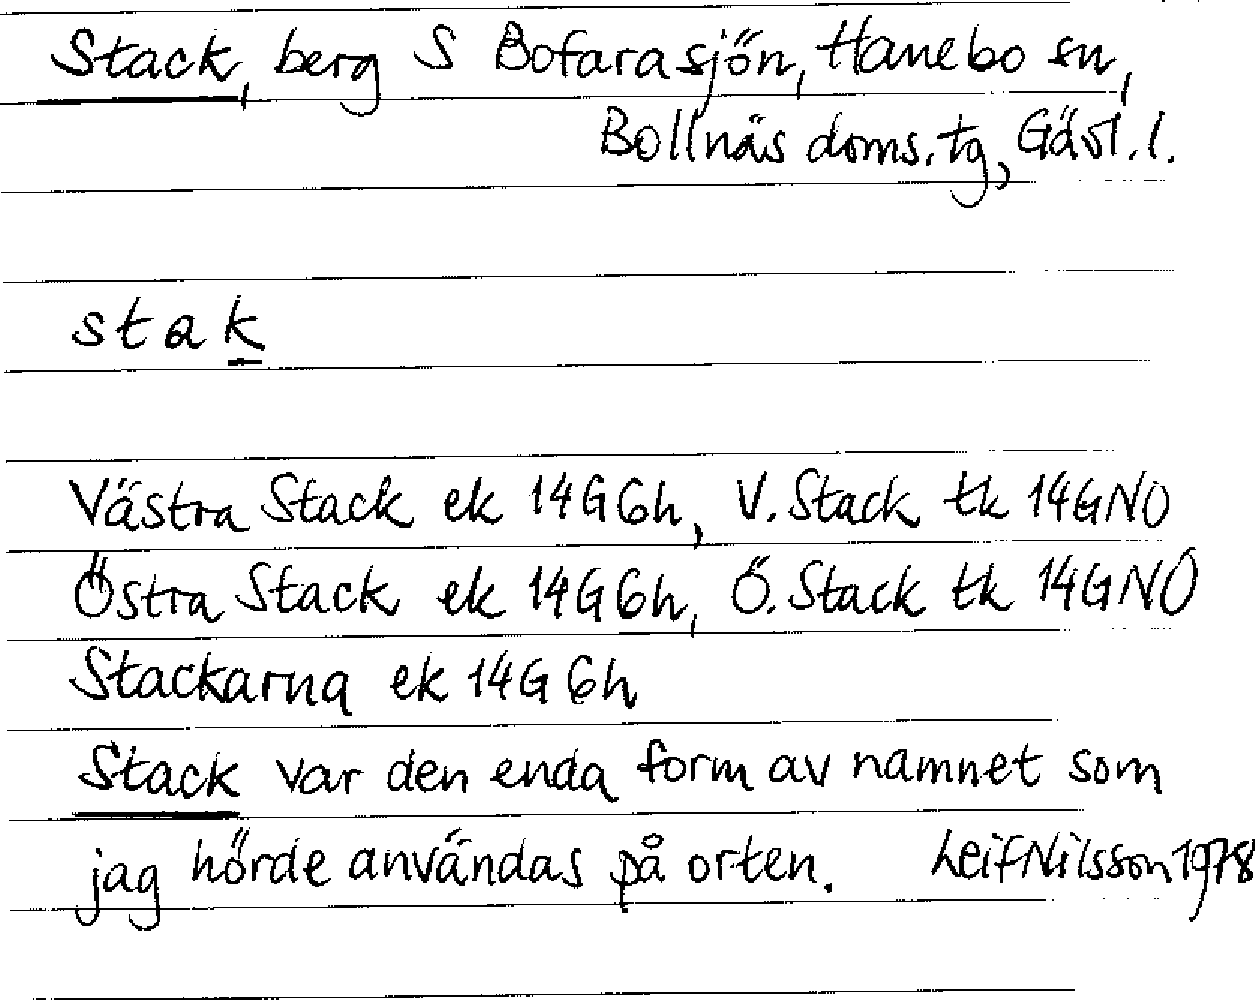 Stack, berg S Bofarasjön, Hanebo sn,
Bollnäs doms. tg, Gävl. l.
stak
Västra Stack ek 14G6h, V. Stack tk 14GNO
Östra Stack ek 14G6h, Ö. Stack tk 14GNO
Stackarna ek 14G6h
Stack var den enda form av namnet som
jag hörde användas på orten. Leif Nilsson 1978